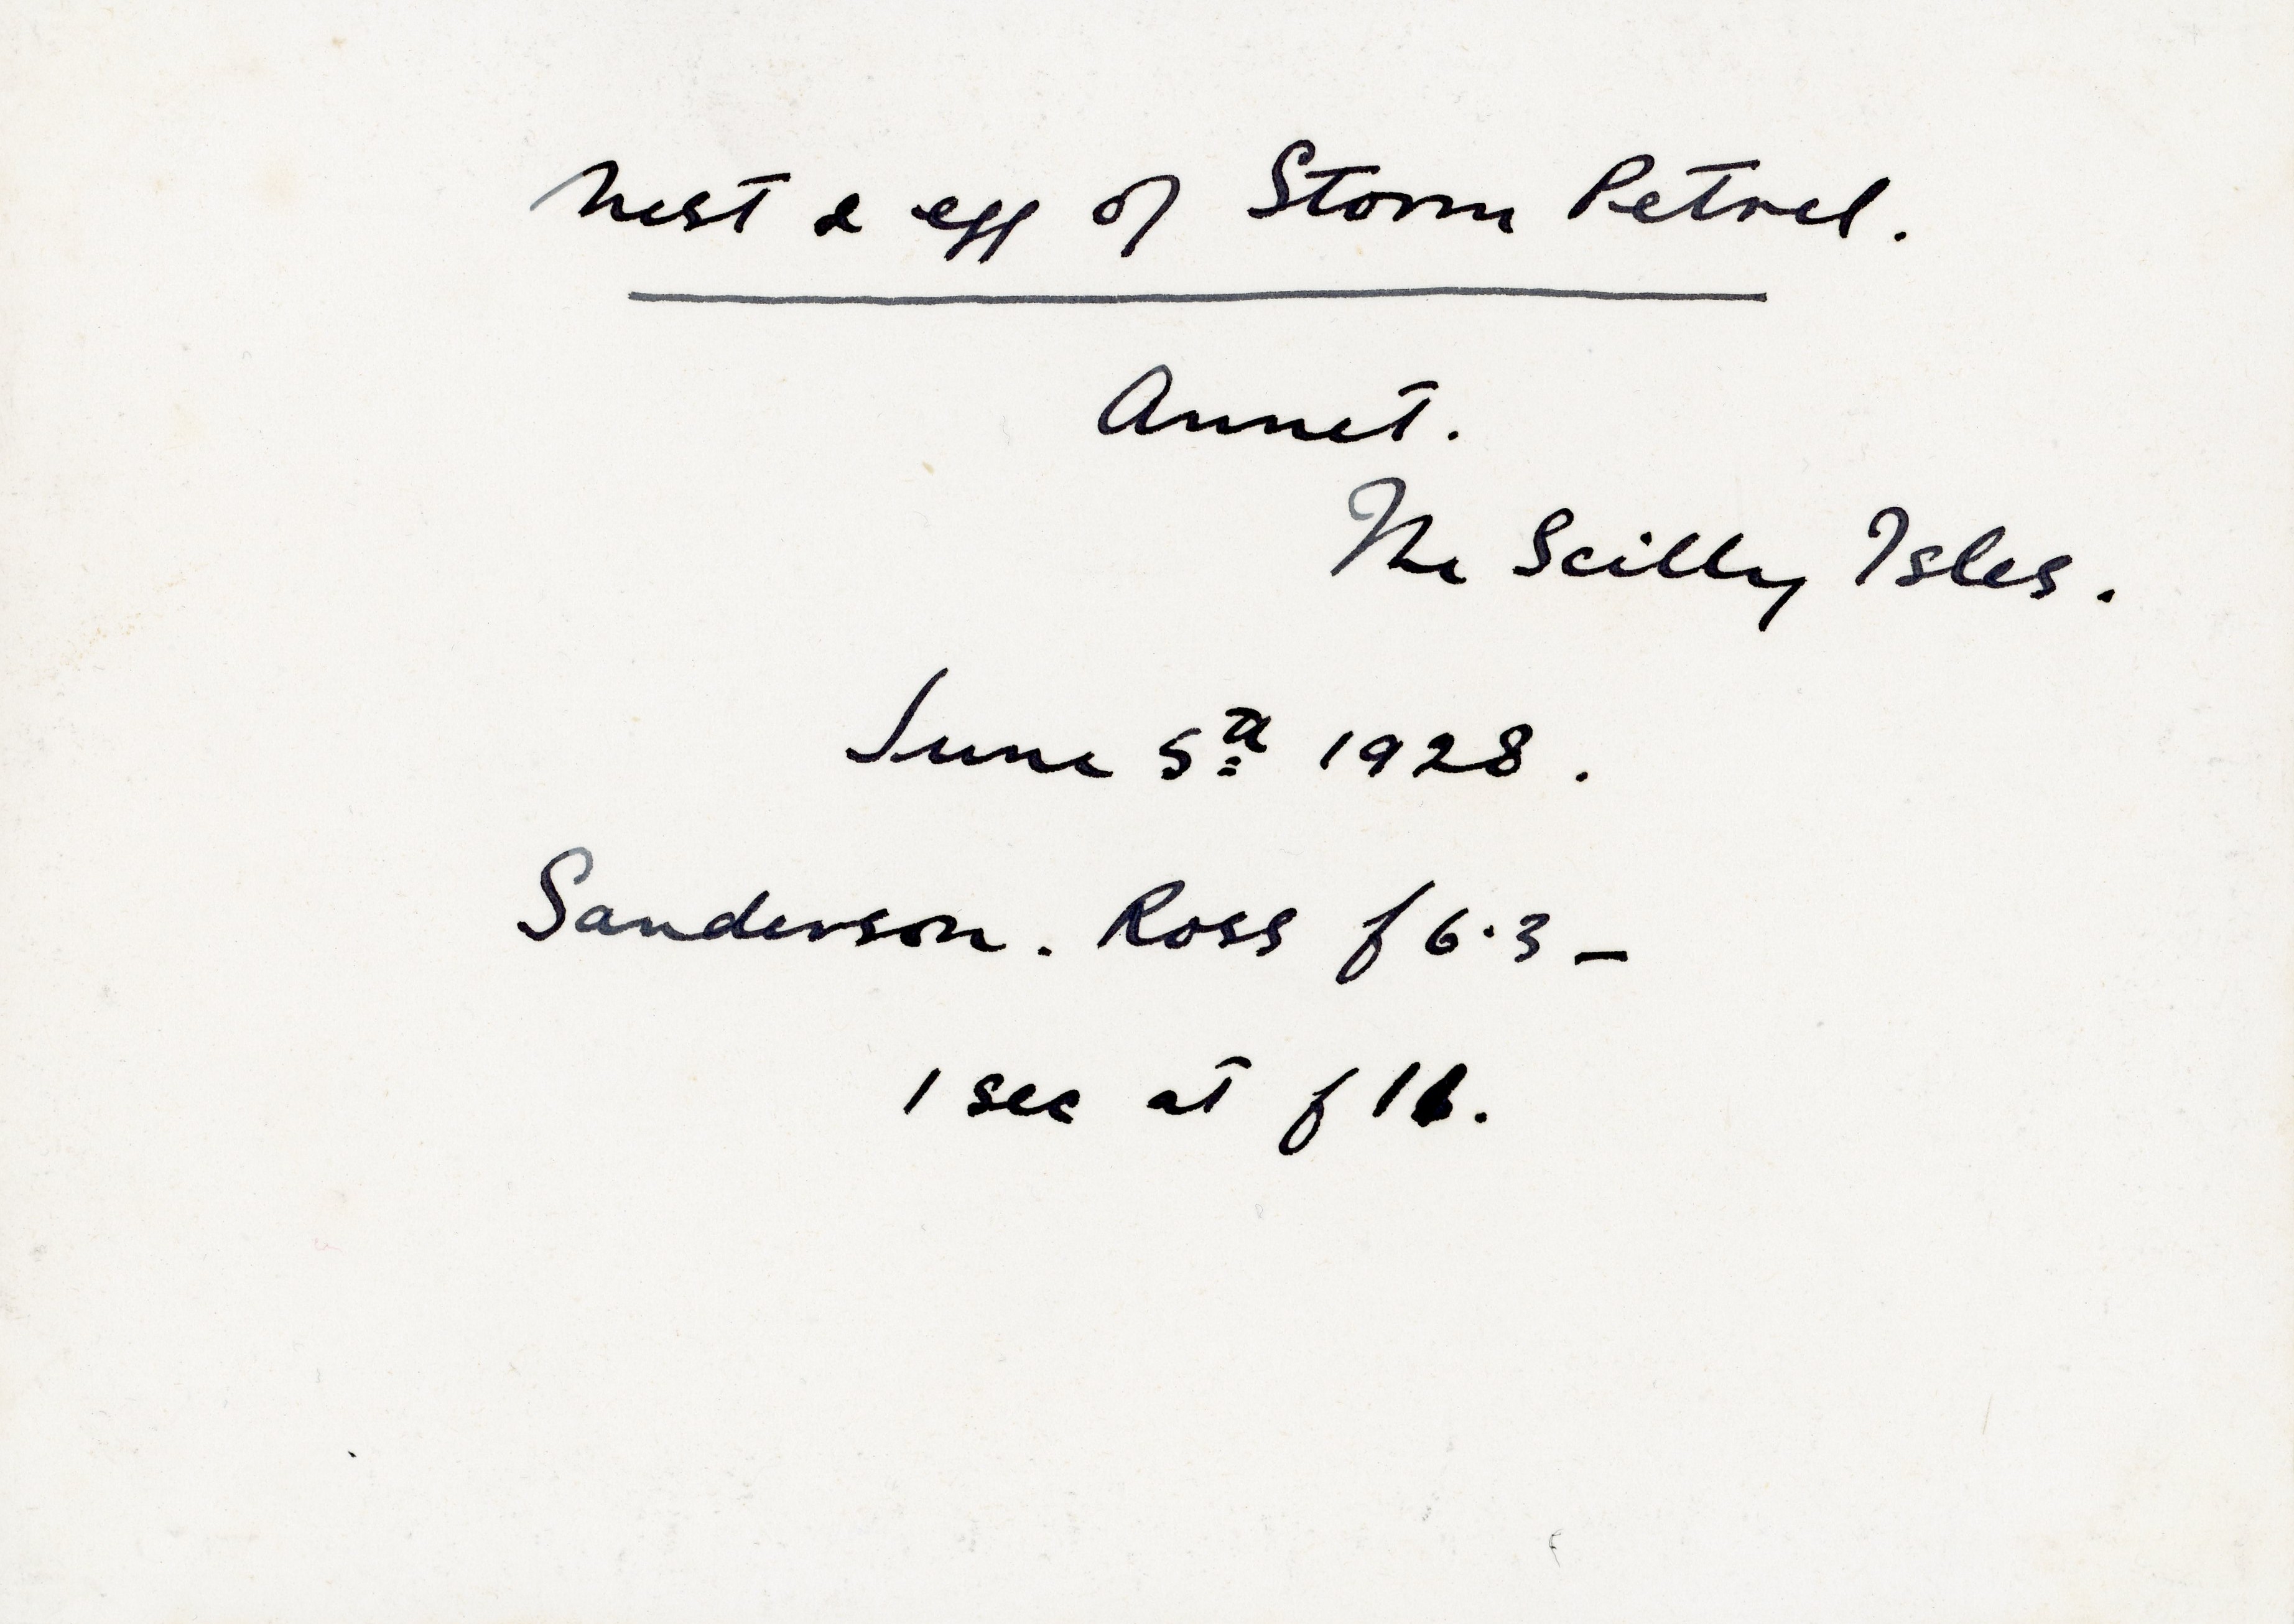 Nest & egg of Storm Petrel.
Annet.
The Scilly Isles.
June 5th 1928.
Sanderson. Ross f 6.3 –
1 sec at f 16.